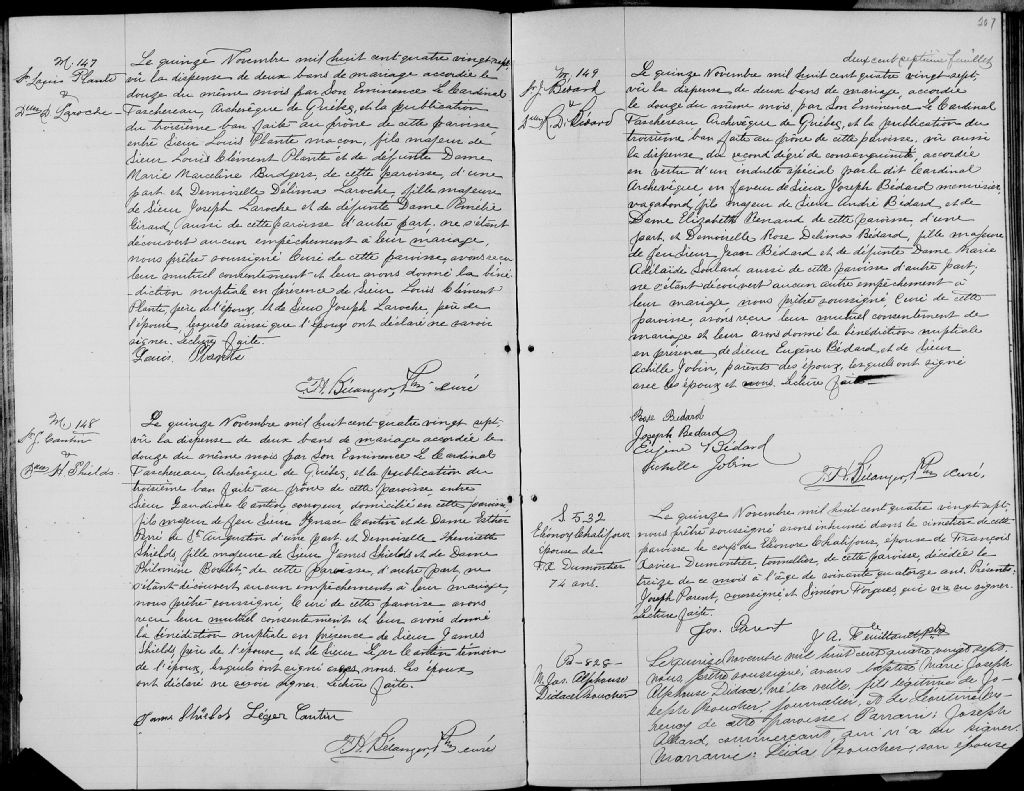 M. 147
Sr Louis Plante
&
Dlle D. Laroche
Le quinze Novembre mil huit cent quatre vingt sept,
vû la dispense de deux bans de mariage accordée le
douze du même mois par Son Eminence Le Cardinal
Taschereau, Archevêque de Québec, et la publication
du troisième ban faite au prône de cette paroisse,
entre Sieur Louis Plante maçon, fils majeur de
Sieur Louis Clément Plante et de défunte Dame
Marie Marceline de cette paroisse, d'une
part et Demoiselle Délima Laroche, fille majeure
de Sieur Joseph Laroche et de défunte Dame Pamélie
Girard, aussi de cette paroisse d'autre part, ne s'étant
découvert aucun empêchement à leur mariage,
nous prêtre soussigné Curé de cette paroisse, avons reçu
leur mutuel consentement et leur avons donné la béné-
diction nuptiale en présence de Sieur Louis Clément
Plante, père de l'époux, et de Sieur Joseph Laroche, père de
l'épouse, lesquels ainsi que l'épouse ont déclaré ne savoir
signer. Lecture faite.
Louis Plante
F. H. Bélanger, Ptre curé
M. 148
Sr J. Cantin
&
Dlle H. Shields.
Le quinze Novembre mil huit cent quatre vingt sept,
vû la dispense de deux bans de mariage accordée le
douze du même mois par Son Eminence Le Cardinal
Taschereau, Archevêque de Québec, et la publication du
troisième ban faite au prône de cette paroisse entre
Sieur Gaudiose Cantin, corroyeur, domicilié en cette paroisse,
fils majeur de feu Sieur Ignace Cantin et de Dame Esther
Verré de St Augustin d'une part et Demoiselle Henriette
Shields, fille majeure de Sieur James Shields et de Dame
Philomène de cette paroisse, d'autre part, ne
s'étant découvert aucun empêchement à leur mariage,
nous prêtre soussigné, Curé de cette paroisse, avons
reçu leur mutuel consentement et leur avons donné
la bénédiction nuptiale en présence de Sieur James
Shields père de l'épouse et de Sieur Léger Cantin témoin
de l'époux, lesquels ont signé avec nous. Les époux
ont déclaré ne savoir signer. Lecture faite.
James Shields Léger Cantin
F. H. Bélanger, Ptre curé
207
deux cent septième feuillet
M. 149
Sr J. Bédard
&
Dlle R. D. Bédard
Le quinze Novembre mil huit cent quatre vingt sept,
vû la dispense de deux bans de mariage, accordée
le douze du même mois, par Son Eminence Le Cardinal
Taschereau Archevêque de Québec, et la publication du
troisième ban faite au prône de cette paroisse, vû aussi
la dispense du second degré de consanguinité, accordée
en vertu d'un indulte spécial par le dit Cardinal
Archevêque en faveur de Sieur Joseph Bédard menuisier,
vagabond, fils majeur de Sieur André Bédard, et de
Dame Elizabeth Renaud de cette paroisse, d'une
part, et Demoiselle Rose Delima Bédard, fille majeure
de feu Sieur Jean Bédard et de défunte Dame Marie
Adélaïde Soulard aussi de cette paroisse d'autre part;
ne s'étant découvert aucun autre empêchement à
leur mariage nous prêtre soussigné Curé de cette
paroisse, avons reçu leur mutuel consentement de
mariage et leur avons donné la bénédiction nuptiale
en présence de Sieur Eugène Bédard, et de Sieur
Achille Jobin, parents des époux, lesquels ont signé
avec les époux et nous. Lecture faite
Rose Bédard
Joseph Bedard
Eugène Bédard
Achille Jobin
F. H. Bélanger, Ptre curé,
S. 532
Eléonore Chalifour
épouse de
F. X. Dumontier
74 ans.
Le quinze Novembre mil huit cent quatre vingt sept,
nous prêtre soussigné avons inhumé dans le cimetière de cette
paroisse le corps de Eléonore Chalifour, épouse de François
Xavier Dumontier, tonnelier, de cette paroisse, décédée le
treize de ce mois à l'âge de soixante quatorze ans. Présents:
Joseph Parent, soussigné, et Siméon Forgues qui n'a su signer.
Lecture faite.
Jos. Parent
J A. Feuiltault ptre
B - 828 -
M. Jos. Alphonse
Didace Boucher
Le quinze novembre mil huit cent quatre vingt sept,
nous, prêtre soussigné, avons baptisé Marie Joseph
Alphonse Didace, né la veille, fils légitime de Jo-
seph Boucher, journalier, et de
de cette paroisse. Parrain: Joseph
Allard, commerçant, qui n'a su signer.
Marraine: Léda Boucher, son épouse